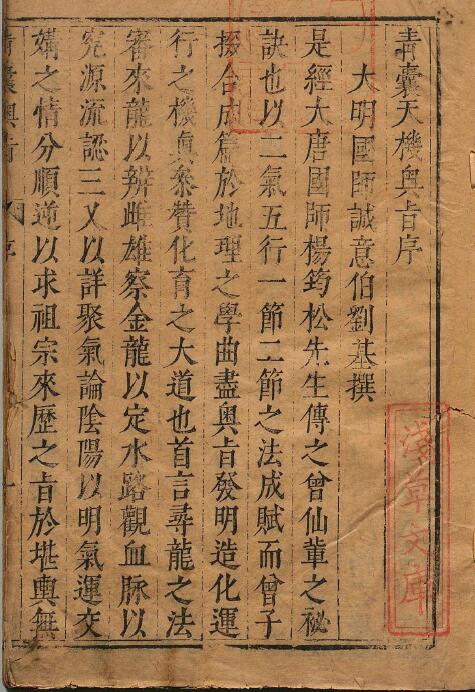 青囊天機奧旨序
大明國師誠意伯劉基撰
是經大唐國師楊筠松先生傳之曾仙軰之祕
訣也以二氣五行一節二節之法成賦而曾子
掇合成篇於地理之學曲盡奧旨發明造化運
行之機眞叅賛化育之大道也首言尋龍之法
審來龍以辨雌雄察金龍以定水路觀血脉以
究源流認三叉以詳聚氣論陰陽以明氣運交
媾之情分順逆以求祖宗來歷之旨於堪輿無
淺草文庫